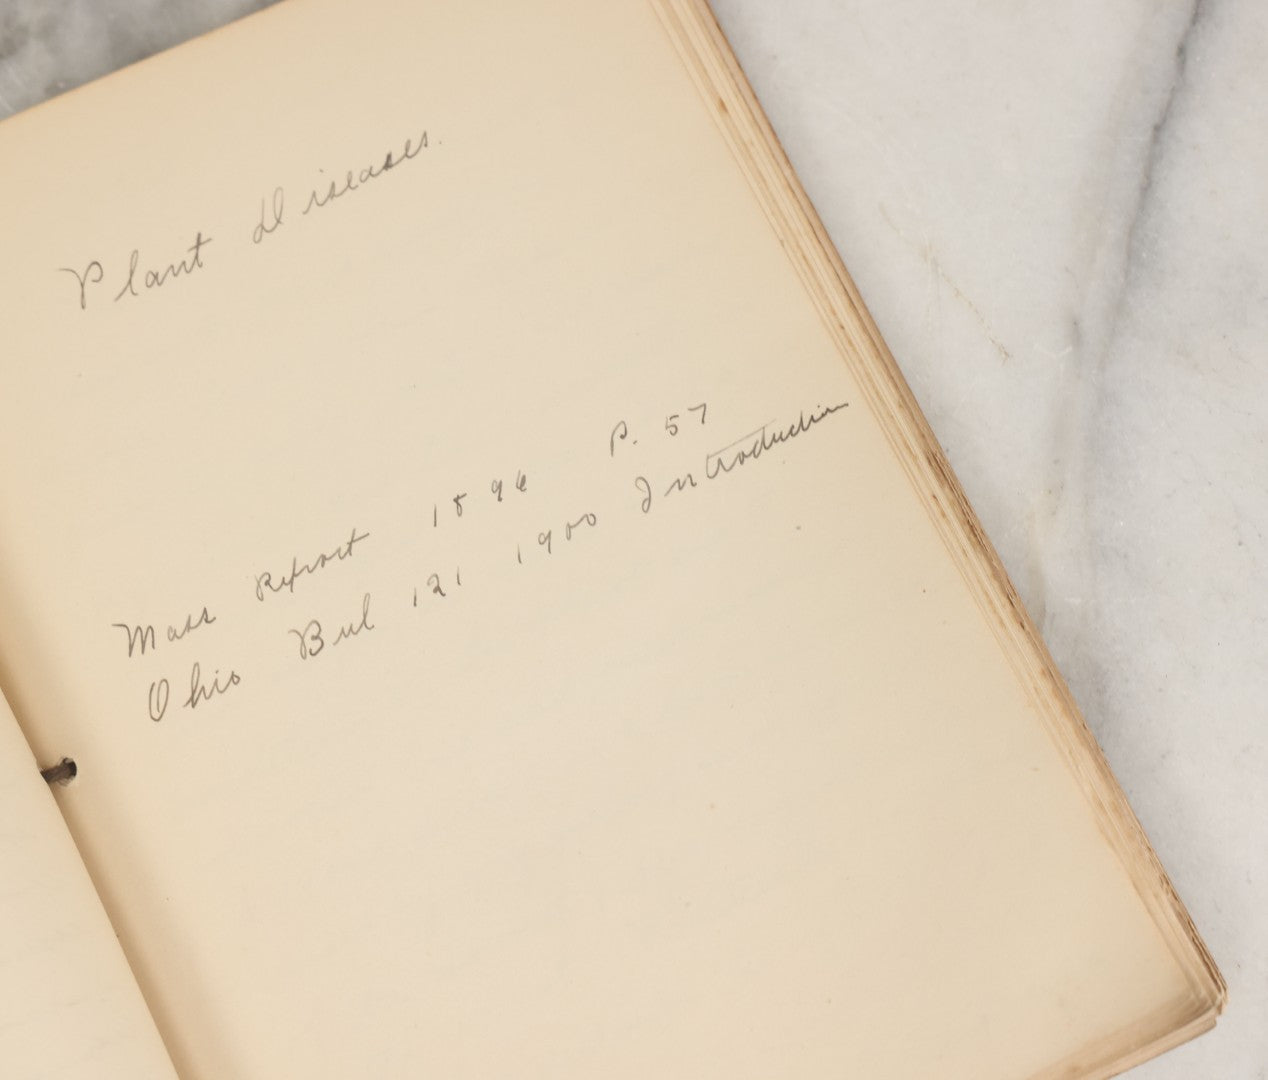 Plant Diseases.
Mass Report 1896 P. 57
Ohio Bul 121 1900 Introduction